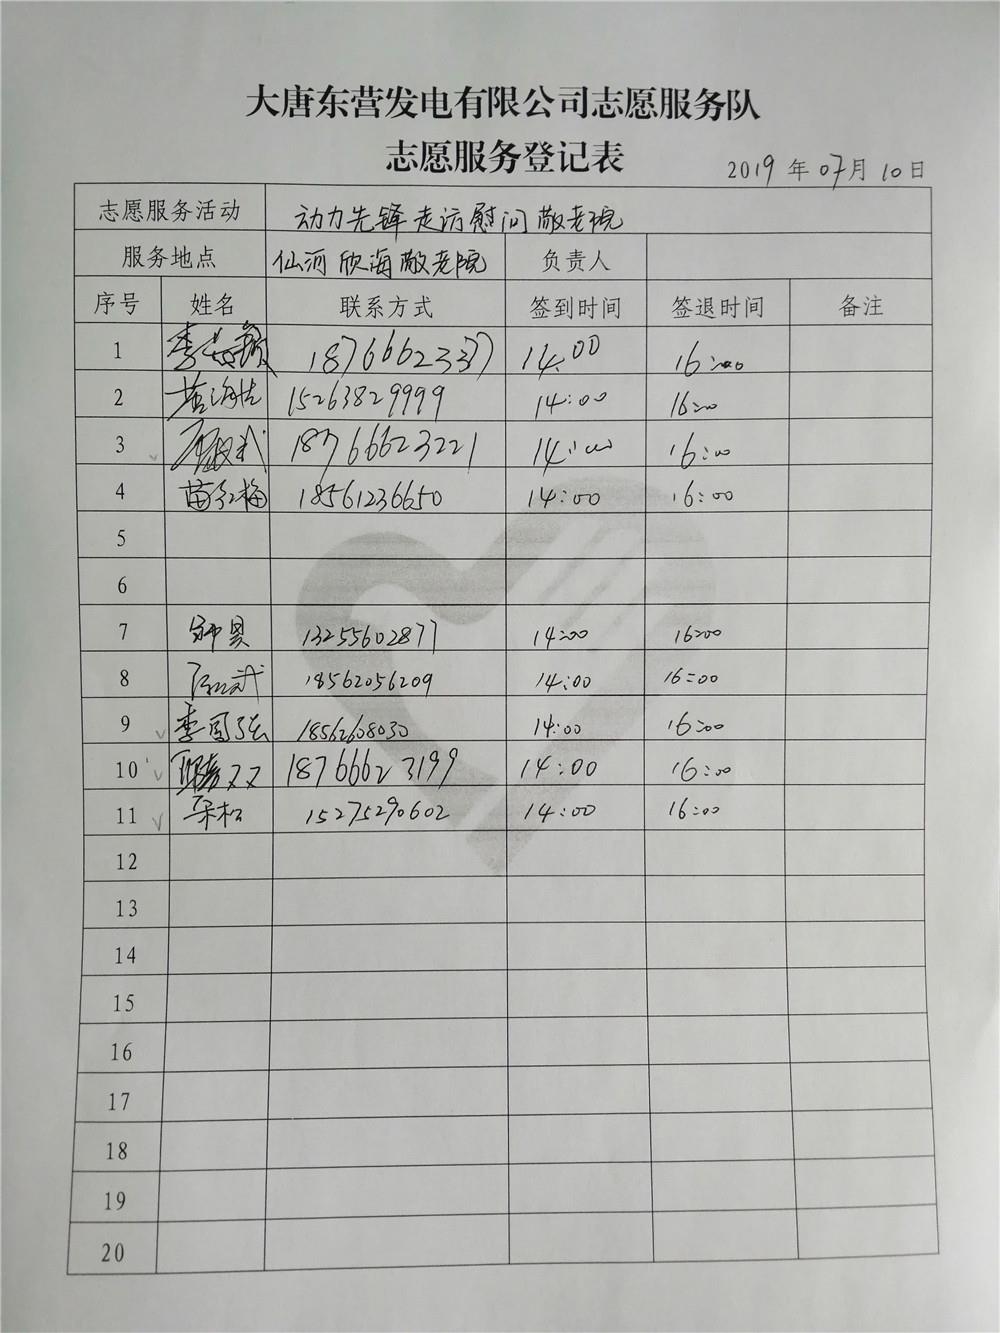 大唐东营发电有限公司志愿服务队
志愿服务登记表
2019 年 07月 10日
志愿服务活动 动力先锋走访慰问敬老院
服务地点 仙河欣海敬老院 负责人
序号 姓名 联系方式 签到时间 签退时间 备注
1 18766623377 14:00 16:00
2 15263829999 14:00 16:00
3 18766623221 14:00 16:00
4 苗红梅 18561236650 14:00 16:00
5
6
7 13255602877 14:00 16:00
8 18562056209 14:00 16:00
9 18562608030 14:00 16:00
10 18766623199 14:00 16:00
11 15275290602 14:00 16:00
12
13
14
15
16
17
18
19
20